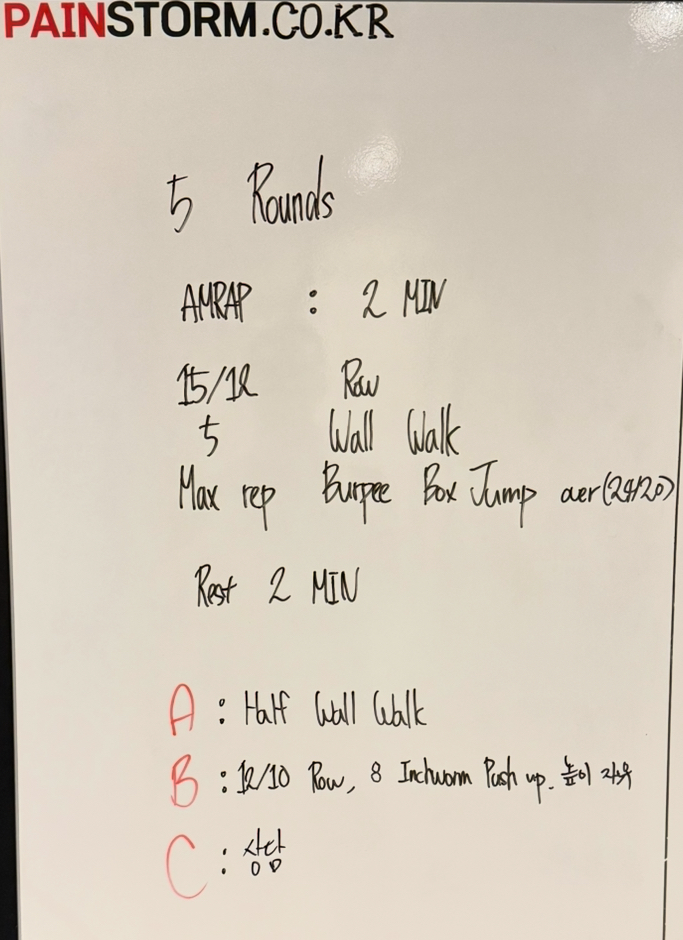 PAINSTORM.CO.KR
5 Rounds
AMRAP : 2 MIN
15/12 Row
5 Wall Walk
Max rep Burpee Box Jump over (24/20)
Rest 2 MIN
A : Half Wall Walk
B : 12/10 Row, 8 Inchworm Push up. 높이 자유
C : 상담